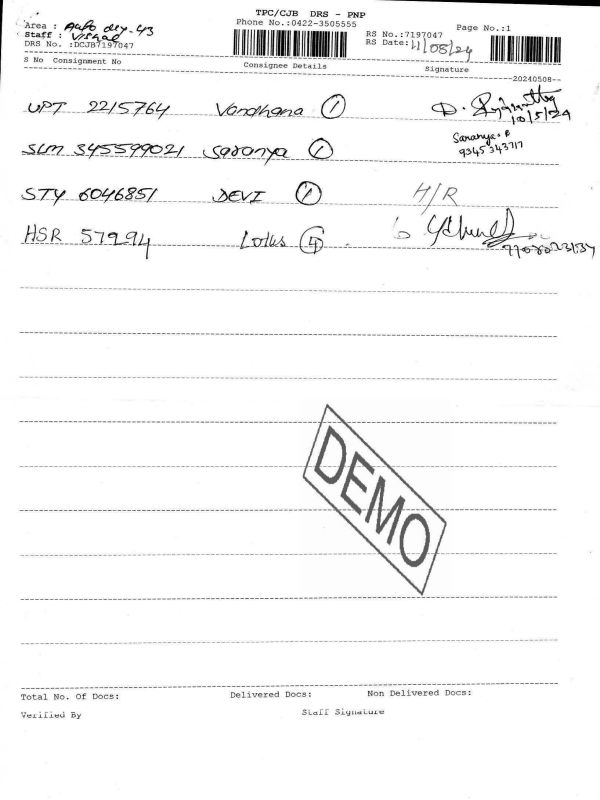 TPC/CJB DRS - PNP
Phone No.:0422-3505555
Page No.:1
Area : Auto dey-43
Staff : Vishal
RS No.:7197047
DRS No. :DCJB7197047
RS Date: 11/05/24
S No Consignment No Consignee Details Signature
20240508
UPT 2215764 Vandhana 1
10/5/24
SLM 345599021 Saranya 1 Saranya. P
9345343717
STY 6046851 DEVI 1 H/R
HSR 57994 Lotus 4
DEMO
Total No. Of Docs: Delivered Docs: Non Delivered Docs:
Verified By Staff Signature